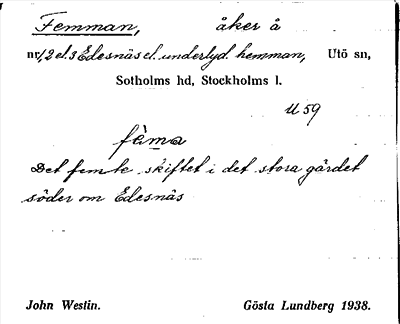 Femman, åker å
nr 1, 2 el. 3 Edesnäs el. underlyd. hemman, Utö sn,
Sotholms hd, Stockholms l.
U 59
fèma
Det femte skiftet i det stora gärdet
söder om Edesnäs
John Westin. Gösta Lundberg 1938.